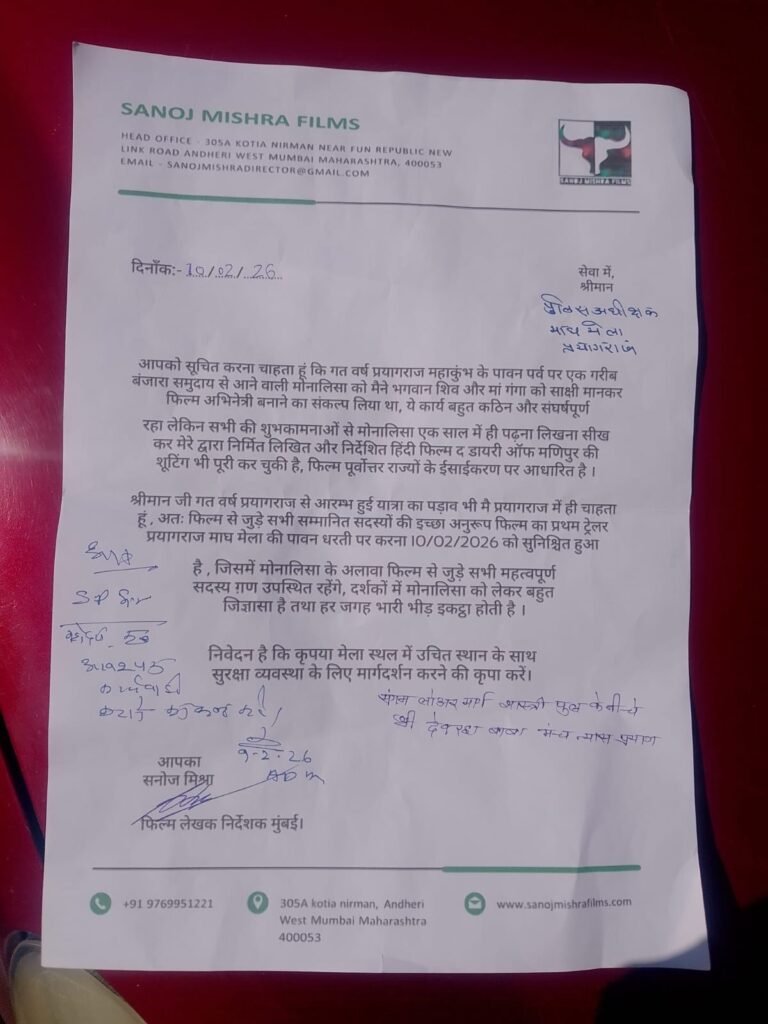 SANOJ MISHRA FILMS
HEAD OFFICE - 305A KOTIA NIRMAN NEAR FUN REPUBLIC NEW
LINK ROAD ANDHERI WEST MUMBAI MAHARASHTRA, 400053
EMAIL - SANOJMISHRADIRECTOR@GMAIL.COM
SANOJ MISHRA FILMS
दिनाँक:-10/02/26
सेवा में,
श्रीमान
पुलिस अधीक्षक
माघ मेला
प्रयागराज
आपको सूचित करना चाहता हूं कि गत वर्ष प्रयागराज महाकुंभ के पावन पर्व पर एक गरीब
बंजारा समुदाय से आने वाली मोनालिसा को मैने भगवान शिव और मां गंगा को साक्षी मानकर
फिल्म अभिनेत्री बनाने का संकल्प लिया था, ये कार्य बहुत कठिन और संघर्षपूर्ण
रहा लेकिन सभी की शुभकामनाओं से मोनालिसा एक साल में ही पढ़ना लिखना सीख
कर मेरे द्वारा निर्मित लिखित और निर्देशित हिंदी फिल्म द डायरी ऑफ मणिपुर की
शूटिंग भी पूरी कर चुकी है, फिल्म पूर्वोत्तर राज्यों के ईसाईकरण पर आधारित है ।
श्रीमान जी गत वर्ष प्रयागराज से आरम्भ हुई यात्रा का पड़ाव भी मै प्रयागराज में ही चाहता
हूं , अतः फिल्म से जुड़े सभी सम्मानित सदस्यों की इच्छा अनुरूप फिल्म का प्रथम ट्रेलर
प्रयागराज माघ मेला की पावन धरती पर करना 10/02/2026 को सुनिश्चित हुआ
है , जिसमें मोनालिसा के अलावा फिल्म से जुड़े सभी महत्वपूर्ण
सदस्य ग़ण उपस्थित रहेंगे, दर्शकों में मोनालिसा को लेकर बहुत
जिज्ञासा है तथा हर जगह भारी भीड़ इकट्ठा होती है ।
निवेदन है कि कृपया मेला स्थल में उचित स्थान के साथ
सुरक्षा व्यवस्था के लिए मार्गदर्शन करने की कृपा करें।
SP
आवश्यक
कार्यवाही
9-2-26
ADM
संगम लोअर मार्ग शास्त्री पुल के नीचे
श्री देवरहा बाबा मंच न्यास प्रयाग
आपका
सनोज मिश्रा
फिल्म लेखक निर्देशक मुंबई।
+91 9769951221
305A kotia nirman, Andheri
West Mumbai Maharashtra
400053
www.sanojmishrafilms.com